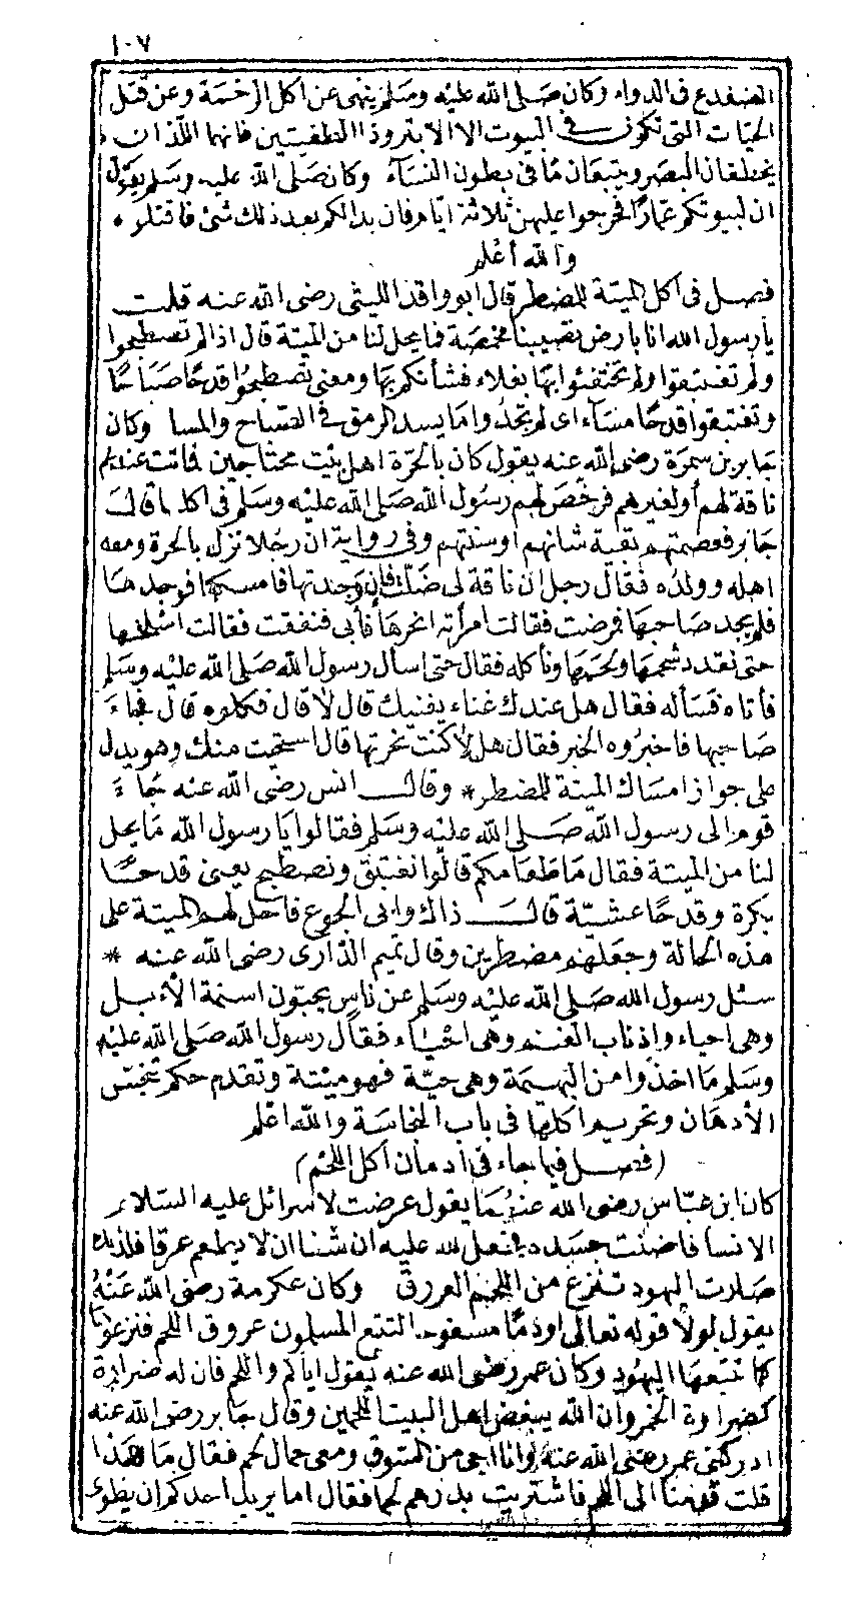 ١٠٧
الضفدع فى الدواء وكان صلى الله عليه وسلم ينهى عن اكل الرخمة وعن قتل
الحيات التى تكون فى البيوت الا الابتر وذا الطفيتين فانهما اللذان
يختطفان البصر ويتبعان ما فى بطون النسآء وكان صلى الله عليه وسلم يقول
ان لبيوتكم عمارًا فحرجوا عليهن ثلاثة ايام فان بدالكم بعد ذلك شئ فاقتلوه
والله أعلم
فصل فى اكل الميتة للمضطر قال ابو واقد الليثى رضى الله عنه قلت
يا رسول الله انا بارض تصيبنا مخمصة فما يحل لنا من الميتة قال اذا لم تصطبحوا
ولم تغتبقوا ولم تحتفئوا بها بقلاء فشأنكم بها ومعنى تصطبحوا قدحًا صباحًا
وتغتبقوا قدحًا مسآء اى لم تجدوا ما يسد الرمق فى الصباح والمسا وكان
جابر بن سمرة رضى الله عنه يقول كان بالحرة اهل بيت محتاجين فماتت عندهم
ناقة لهم أو لغيرهم فرخص لهم رسول الله صلى الله عليه وسلم فى اكلها قال
جابر فعصمتهم بقية شتائهم اوسنتهم وفى رواية ان رجلا نزل بالحرة ومعه
اهله وولده فقال رجل ان ناقة لى ضلت فان وجدتها فامسكها فوجدها
فلم يجد صاحبها فمرضت فقالت امرأته انحرها فأبى فنفقت فقالت اسلخها
حتى نقدد شحمها ولحمها ونأكله فقال حتى اسال رسول الله صلى الله عليه وسلم
فأتاه فسأله فقال هل عندك غناء يغنيك قال لا قال فكلوه قال فجاء
صاحبها فاخبروه الخبر فقال هلا كنت نحرتها قال استحيت منك وهو يدل
على جواز امساك الميتة للمضطر * وقال انس رضى الله عنه جاء
قوم الى رسول الله صلى الله عليه وسلم فقالوا يا رسول الله ما يحل
لنا من الميتة فقال ما طعامكم قالوا نغتبق ونصطبح يعنى قدحًا
بكرة وقدحًا عشية قال ذاك وابى الجوع فاحل لهم الميتة على
هذه الحالة وجعلهم مضطرين وقال تميم الدارى رضى الله عنه *
سئل رسول الله صلى الله عليه وسلم عن ناس يجبون اسنمة الأبل
وهى احياء واذناب الغنم وهى احيآء فقال رسول الله صلى الله عليه
وسلم ما اخذوا من البهيمة وهى حية فهو ميتة وتقدم حكم تنجس
الأدهان وتحريم اكلها فى باب النجاسة والله اعلم
(فصل فيما جاء فى ادمان اكل اللحم)
كان ابن عباس رضى الله عنهما يقول عرضت لاسرائل عليه السلام
الانسا فاضنت جسده فجعل لله عليه ان شفاه ان لا يطعم عرقا فلذلك
صارت اليهود تنزع من اللحم العروق وكان عكرمة رضى الله عنه
يقول لولا قوله تعالى اودمًا مسفوحا لتتبع المسلمون عروق اللحم فنزعوها
كما تتبعها اليهود وكان عمر رضى الله عنه يقول اياكم واللحم فان له ضراوة
كضراوة الخمر وان الله يبغض اهل البيت اللحمين وقال جابر رضى الله عنه
ادركنى عمر رضى الله عنه وانا اجى من السوق ومعى حمال لحم فقال ما هذا
قلت قرمنا الى اللحم فاشتريت بدرهم لحما فقال اما يريد احدكم ان يطوى